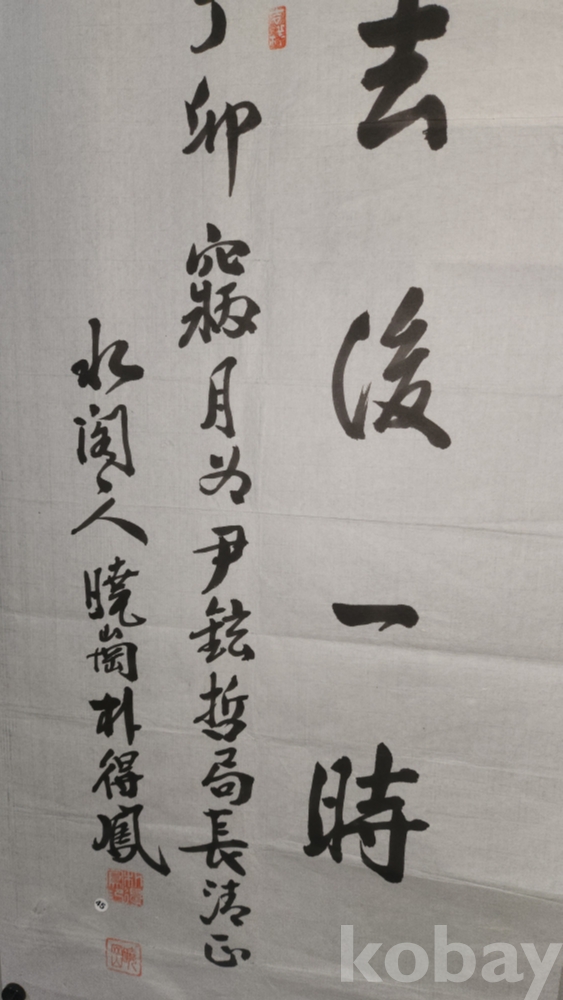 去後一時
丁卯窺月為尹鉉哲局長清正
水閣人 曉崗 朴得鳳
kobay
45